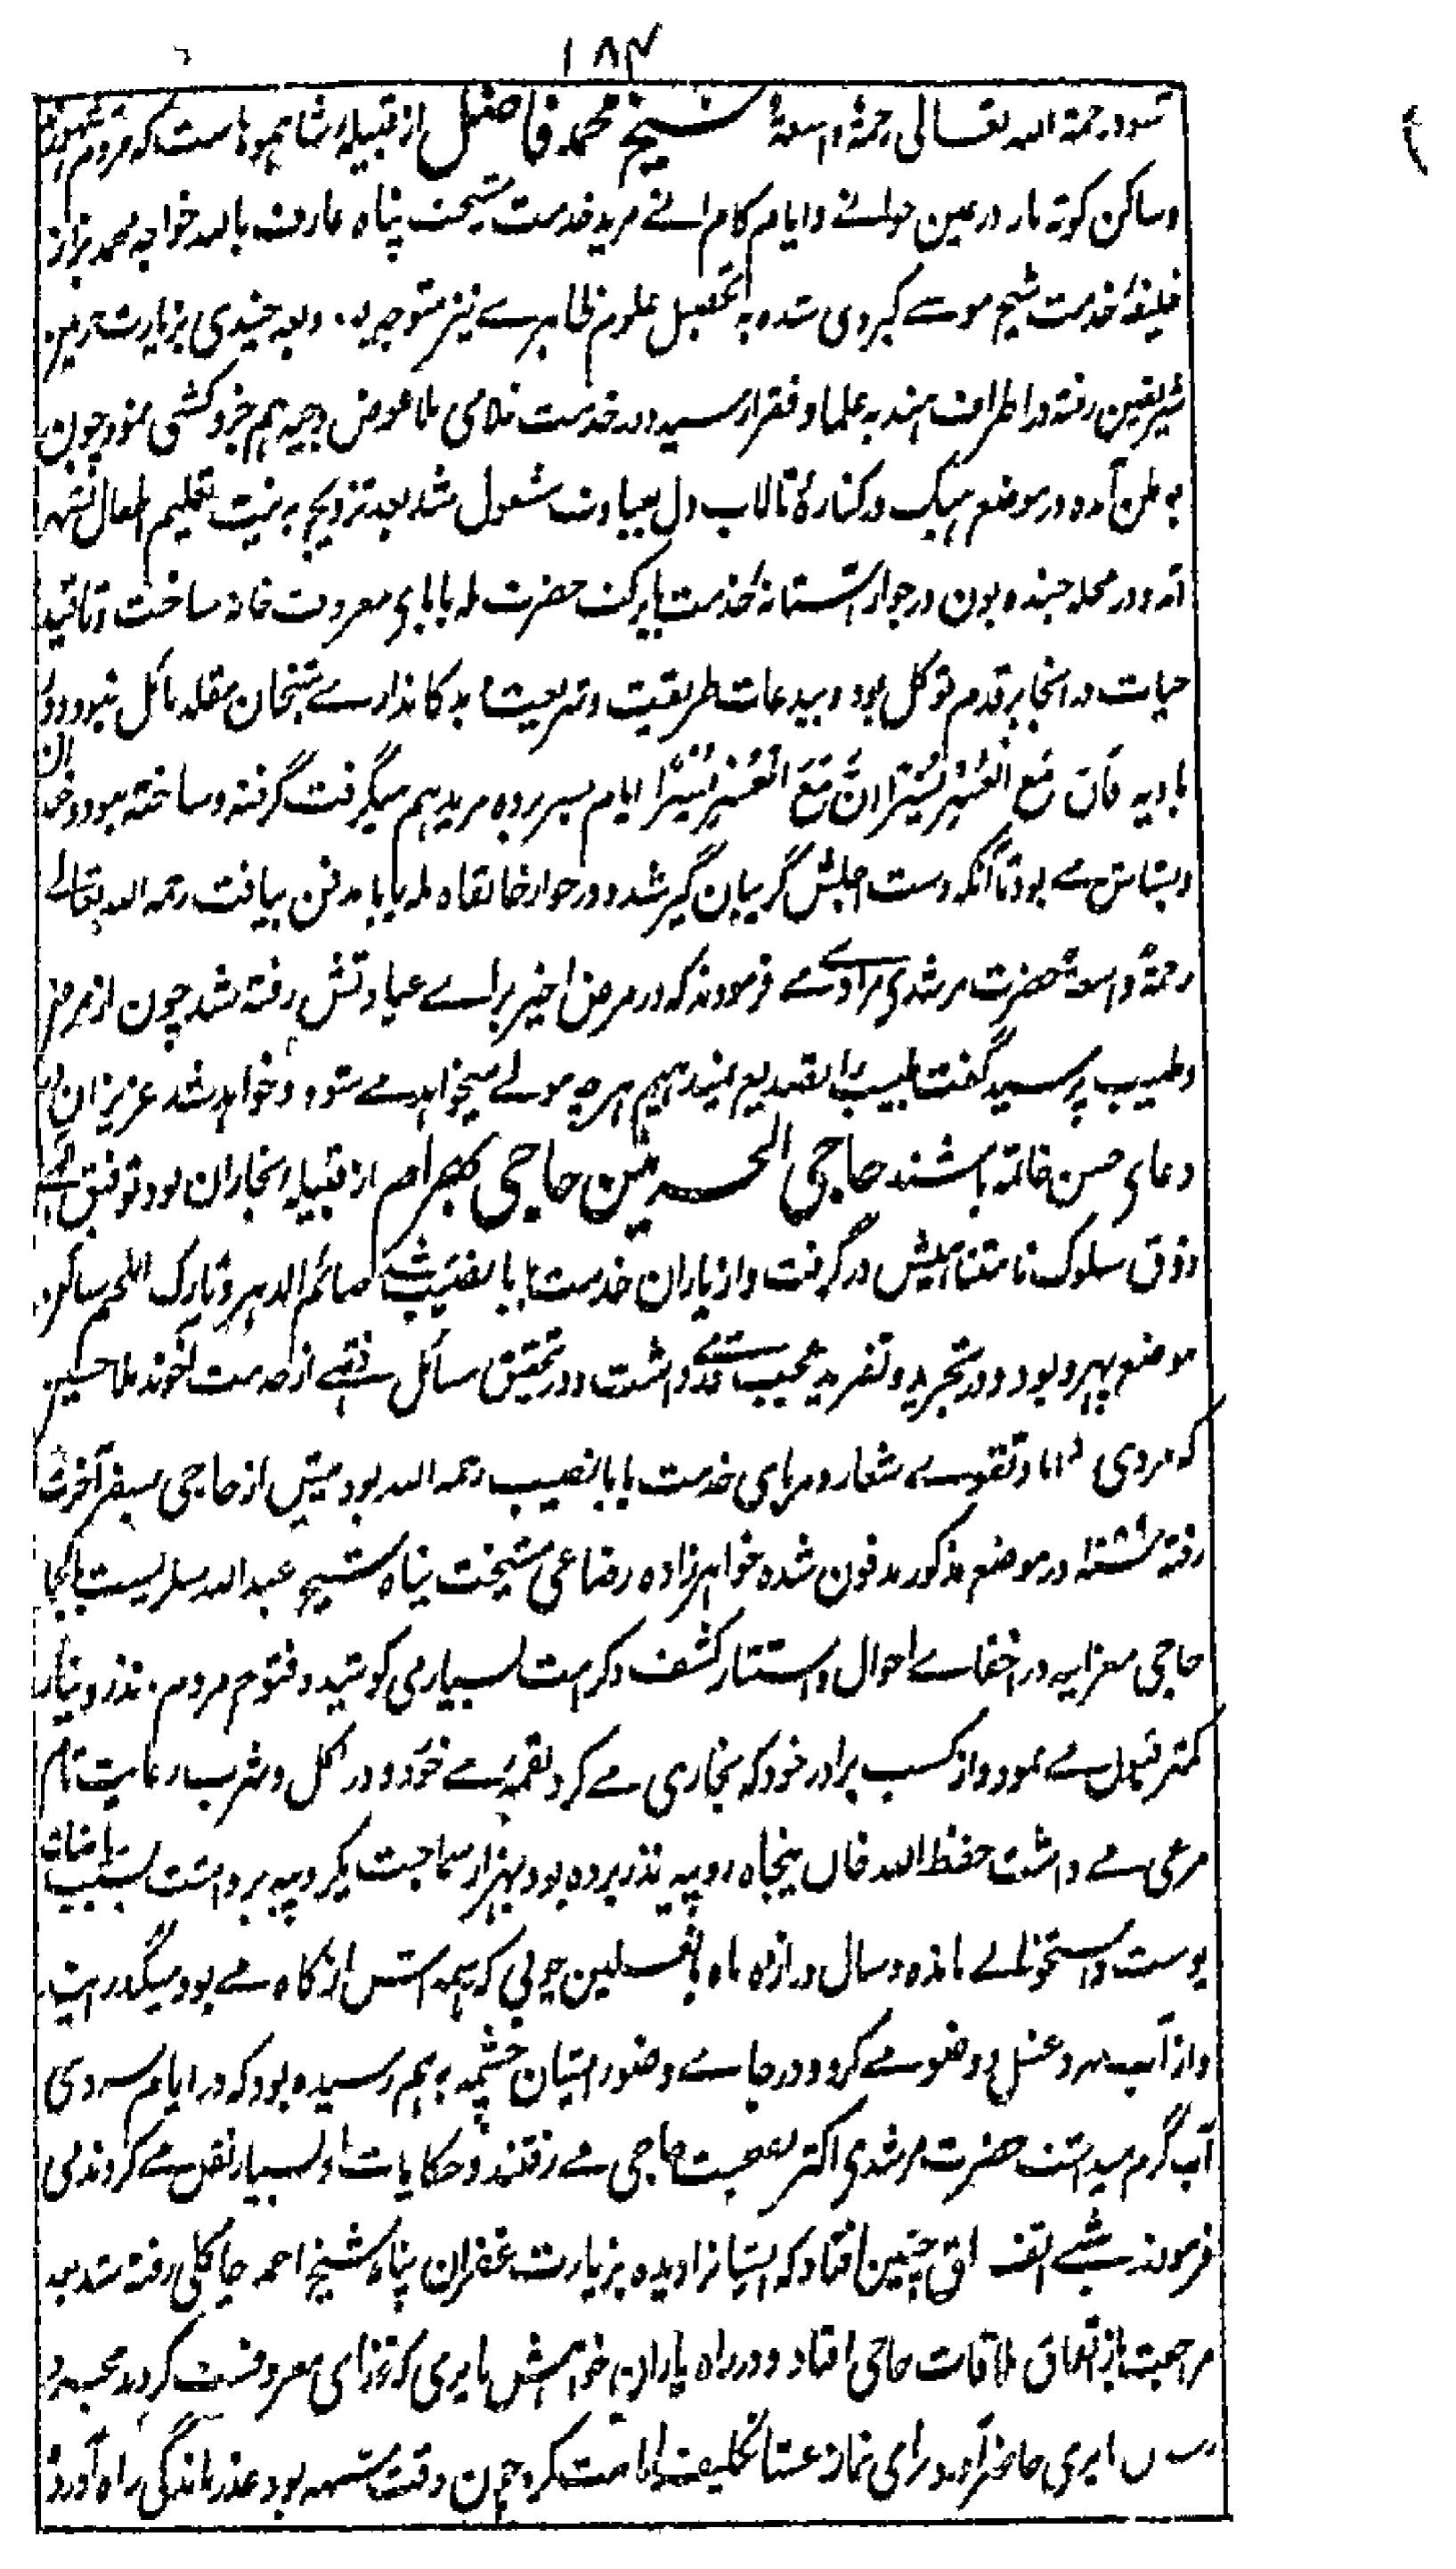 ۱۸۴
نمود رحمة الله تعالی رحمة واسعة شیخ محمد فاضل از قبیله شاهموهاست که مردم مشهورند
وساکن کوته مار در عین جوانے وایام کامرانے مرید خدمت شیخت پناه عارف بالله خواجه محمد بزاز
خلیفهٔ خدمت شیخ موسے کبروی شده به تحصیل علوم ظاهرے نیز متوجه بود وبعد چندی بزیارت حرمین
شریفین رفته در اطراف هند به علما وفقرا رسید ودر خدمت ملا عوض وجیه هم جزو کشی نمود چون
بوطن آمده در موضع در کنارهٔ تالاب دل بعبادت مشغول شد بعد تزویج به نیت تعلیم اطفال بشهر
آمد ودر محله جبنده بون در جوار آستانهٔ خدمت بابرکت حضرت معروف خانه ساخت وتا قید
حیات در انجا بر قدم توکل بود وببدعات طریقت وشریعت به دکاندارے شیخان مقلد مائل نبود ودر
بادیه فَاِنَّ مَعَ الْعُسْرِ یُسْرًا اِنَّ مَعَ الْعُسْرِ یُسْرًا ایام بسر برده مرید هم میگرفت گرفته وساخته نبود وخندان
وبشاش مے بود تا آنکه دست اجلش گریبان گیر شد ودر جوار خانقاه مدفن بیافت رحمه الله تعالے
رحمة واسعة حضرت مرشدی مرادے مے فرمودند که در مرض اخیر براے عیادتش رفته شد چون از مرض
وطبیب پرسید گفت طبیب را تصدیع نمیدهیم هرچه مولے میخواهد مے شود وخواهد شد عزیزان
دعای حسن خاتمه باشند حاجی الحرمین حاجی بهرام از قبیله نجاران بود توفیق الهے
وذوق سلوک نامتناهیش در گرفت واز یاران خدمت بابا نصیب شد صائم الدهر وتارک اللحم ساکن
موضع بود ودر تجرید وتفرید عجیب قدمے داشت ودر تحقیق مسائل فقهے از خدمت آخوند ملا حسین
که مردی دانا وتقوے شعار ومربای خدمت بابا نصیب رحمه الله بود پیش از حاجی بسفر آخرت
رفته در موضع مذکور مدفون شده خواهرزاده رضاعی مشیخت پناه شیخ عبدالله
حاجی معزالیه در اخفاے احوال واستتار کشف وکرامت بسیار می کوشید وفتوح مردم نذر ونیاز
کمتر قبول مے نمود واز کسب برادر خود که نجاری مے کرد لقمهٔ مے خورد ودر اکل وشرب رعایت تام
مرعی مے داشت حفظ الله خان پنجاه روپیه نذر برده بود بهزار سماجت یکروپیه برداشت بسبب ریاضات
پوست واستخوانے مانده وسال دوازده ماه با نعلین چوبی که همه اش از کاه مے بود میگذرانید
واز آب سرد غسل ووضو مے کرد ودر جاے وضو ایشان چشمه بهم رسیده بود که در ایام سردی
آب گرم میداشت حضرت مرشدی اکثر بصحبت حاجی مے رفتند وحکایات او بسیار نقل مے کردند می
فرمودند شبے اتفاق چنین افتاد که ایشانرا دیده بزیارت غفران پناه شیخ احمد چاگلی رفته شد بعد
مراجعت باز اتفاق ملاقات حاجی افتاد ودر راه یاران خواهش که غذای معروفست کردند بمجرد
حاضر آورد وبرای نماز عشا تکلیف امامت کرد چون وقت بود عذر ماندگی راه آوردم